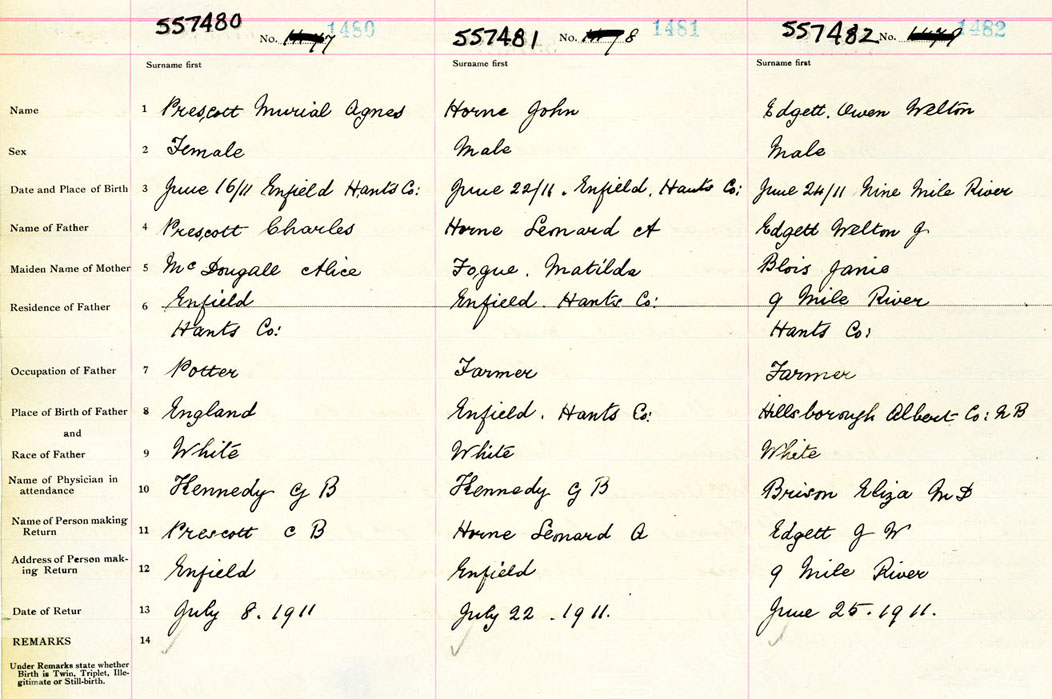 557480 No. 1480
557481 No. 1481
557482 No. 1482
Surname first Surname first Surname first
Name 1 Prescott Murial Agnes Horne John Edgett. Owen Welton
Sex 2 Female Male Male
Date and Place of Birth 3 June 16/11 Enfield Hants Co: June 22/11. Enfield. Hants Co: June 24/11 Nine Mile River
Name of Father 4 Prescott Charles Horne Leonard A Edgett Welton J
Maiden Name of Mother 5 McDougale Alice Fogue. Matilda Blois Janie
Residence of Father 6 Enfield Enfield. Hants Co: 9 Mile River
Hants Co: Hants Co:
Occupation of Father 7 Potter Farmer Farmer
Place of Birth of Father 8 England Enfield. Hants Co: Hillsborough Albert Co: N B
and
Race of Father 9 White White White
Name of Physician in
attendance 10 Kennedy G B Kennedy G B Brison Eliza M D
Name of Person making
Return 11 Prescott C B Horne Leonard A Edgett J W
Address of Person mak-
ing Return 12 Enfield Enfield 9 Mile River
Date of Retur 13 July 8. 1911 July 22. 1911. June 25. 1911.
REMARKS 14
Under Remarks state whether
Birth is Twin, Triplet, Ille-
gitimate or Still-birth.